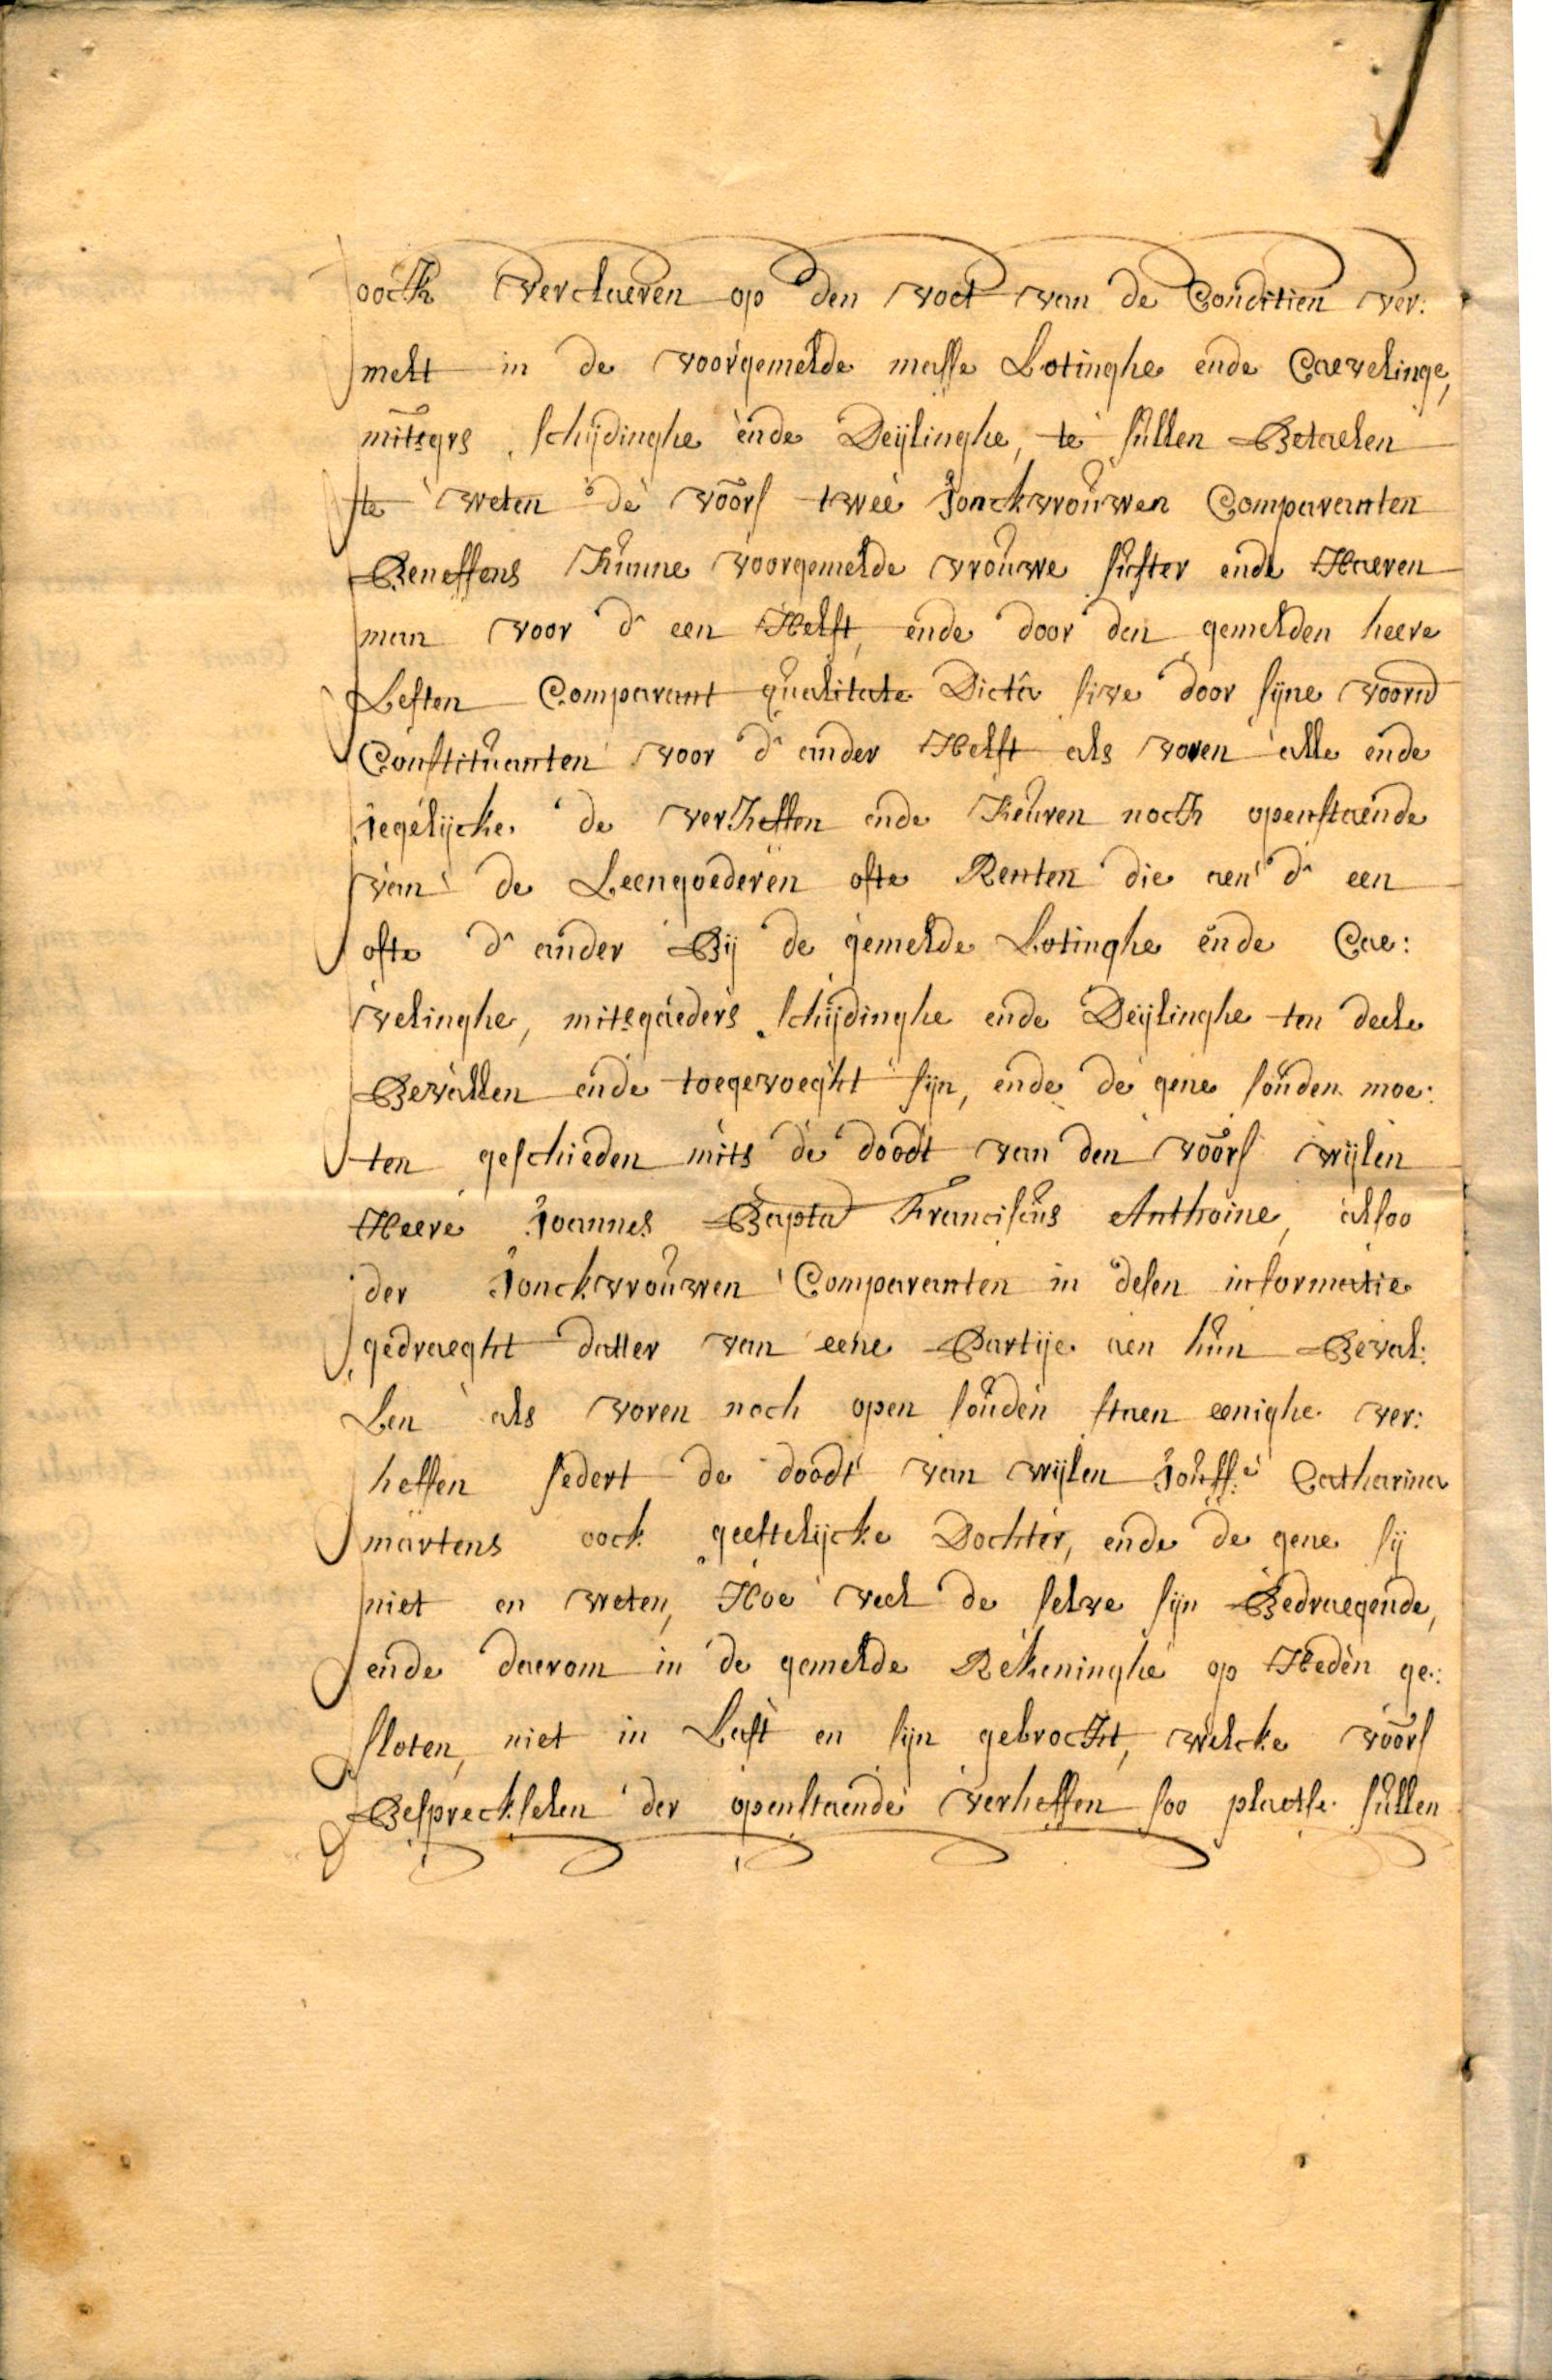 oock verclaeren op den voet van de Conditien ver:
melt in de voorgemelde masse Lotinghe ende Caevelinge,
mitsgrs schijdinghe ende Deijlinghe, te sullen Betaelen
te weten de voors twee Jonckvrouwen Comparanten
Beneffens hunne voorgemelde vrouwe suster ende Haeren
man voor d' een Helft, ende door den gemelden heere
Lesten Comparant qualitate Dicta sive door sijne voornd
Constituanten voor d' ander Helft als voren alle ende
iegelijcke de verheffen ende keuren noch openstaende
van de Leengoederen ofte Renten die aen d' een
ofte d' ander Bij de gemelde Lotinghe ende Cae:
velinghe, mitsgaeders schijdinghe ende Deijlinghe ten deele
Bevallen ende toegevoeght sijn, ende de gene souden moe:
ten geschieden mits de doodt van den voors wijlen
Heere Joannes Bapta Franciscus Anthoine, alsoo
der Jonckvrouwen Comparanten in desen informatie
gedraeght datter van eene Partije aen hun Beval:
Len als voren noch open souden staen eenighe ver:
heffen sedert de doodt van wijlen Jouff:e Catharina
martens oock geestelijcke Dochter, ende de gene sij
niet en weten, Hoe veel de selve sijn Bedraegende,
ende daerom in de gemelde Rekeninghe op Heden ge:
sloten, niet in Last en sijn gebrocht, welcke voors
Bespreckselen der openstaende verheffen soo plaetse sullen